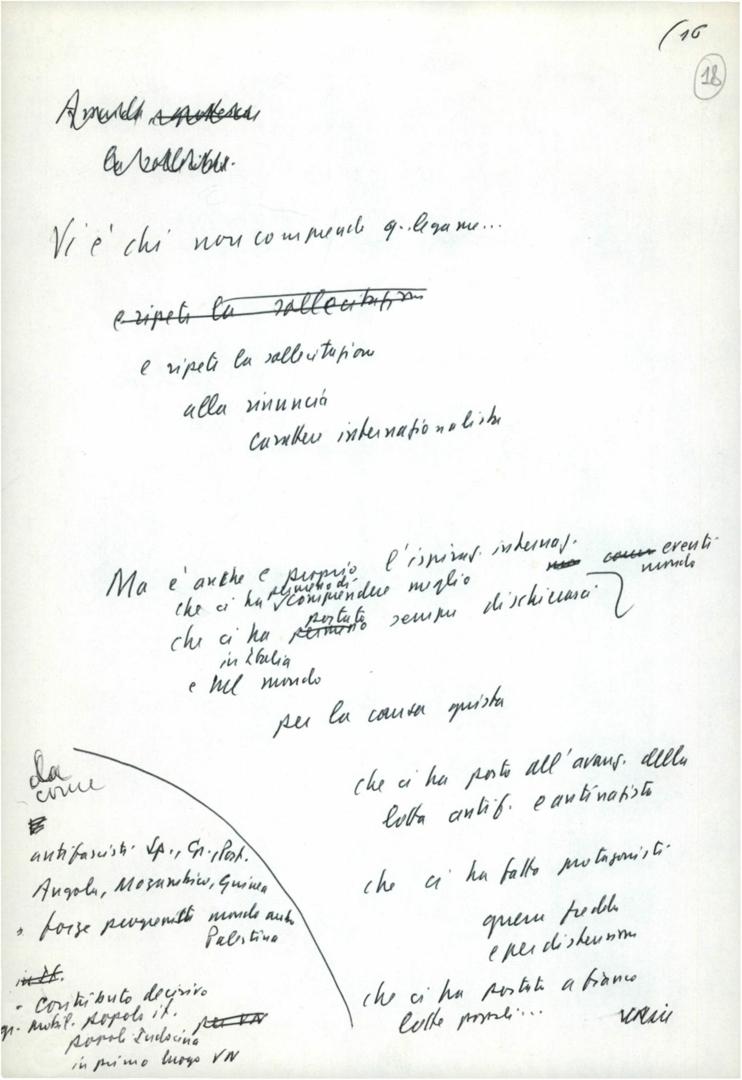 (16
18
Vi è chi non comprende q. legame...
e ripete la sollecitazione
e ripete la sollecitazione
alla rinuncia
carattere internazionalista
Ma è anche e proprio l'ispiraz. internaz.
che ci ha permesso di comprendere meglio eventi mondo
che ci ha permesso portato sempre dischierarci
in Italia
e nel mondo
per la causa giusta
che ci ha posto all'avang. della
lotta antif. e antinazista
che ci ha fatto protagonisti
guerra fredda
e per distensione
che ci ha portati a fianco
lotte popoli...
da
come
antifascisti Sp., Gr., Port.
Angola, Mozambico, Guinea
forze progressiste mondo arabo
Palestina
- contributo decisivo
gr. mobil. popolo it. per VN
popoli Indocina
in primo luogo VN